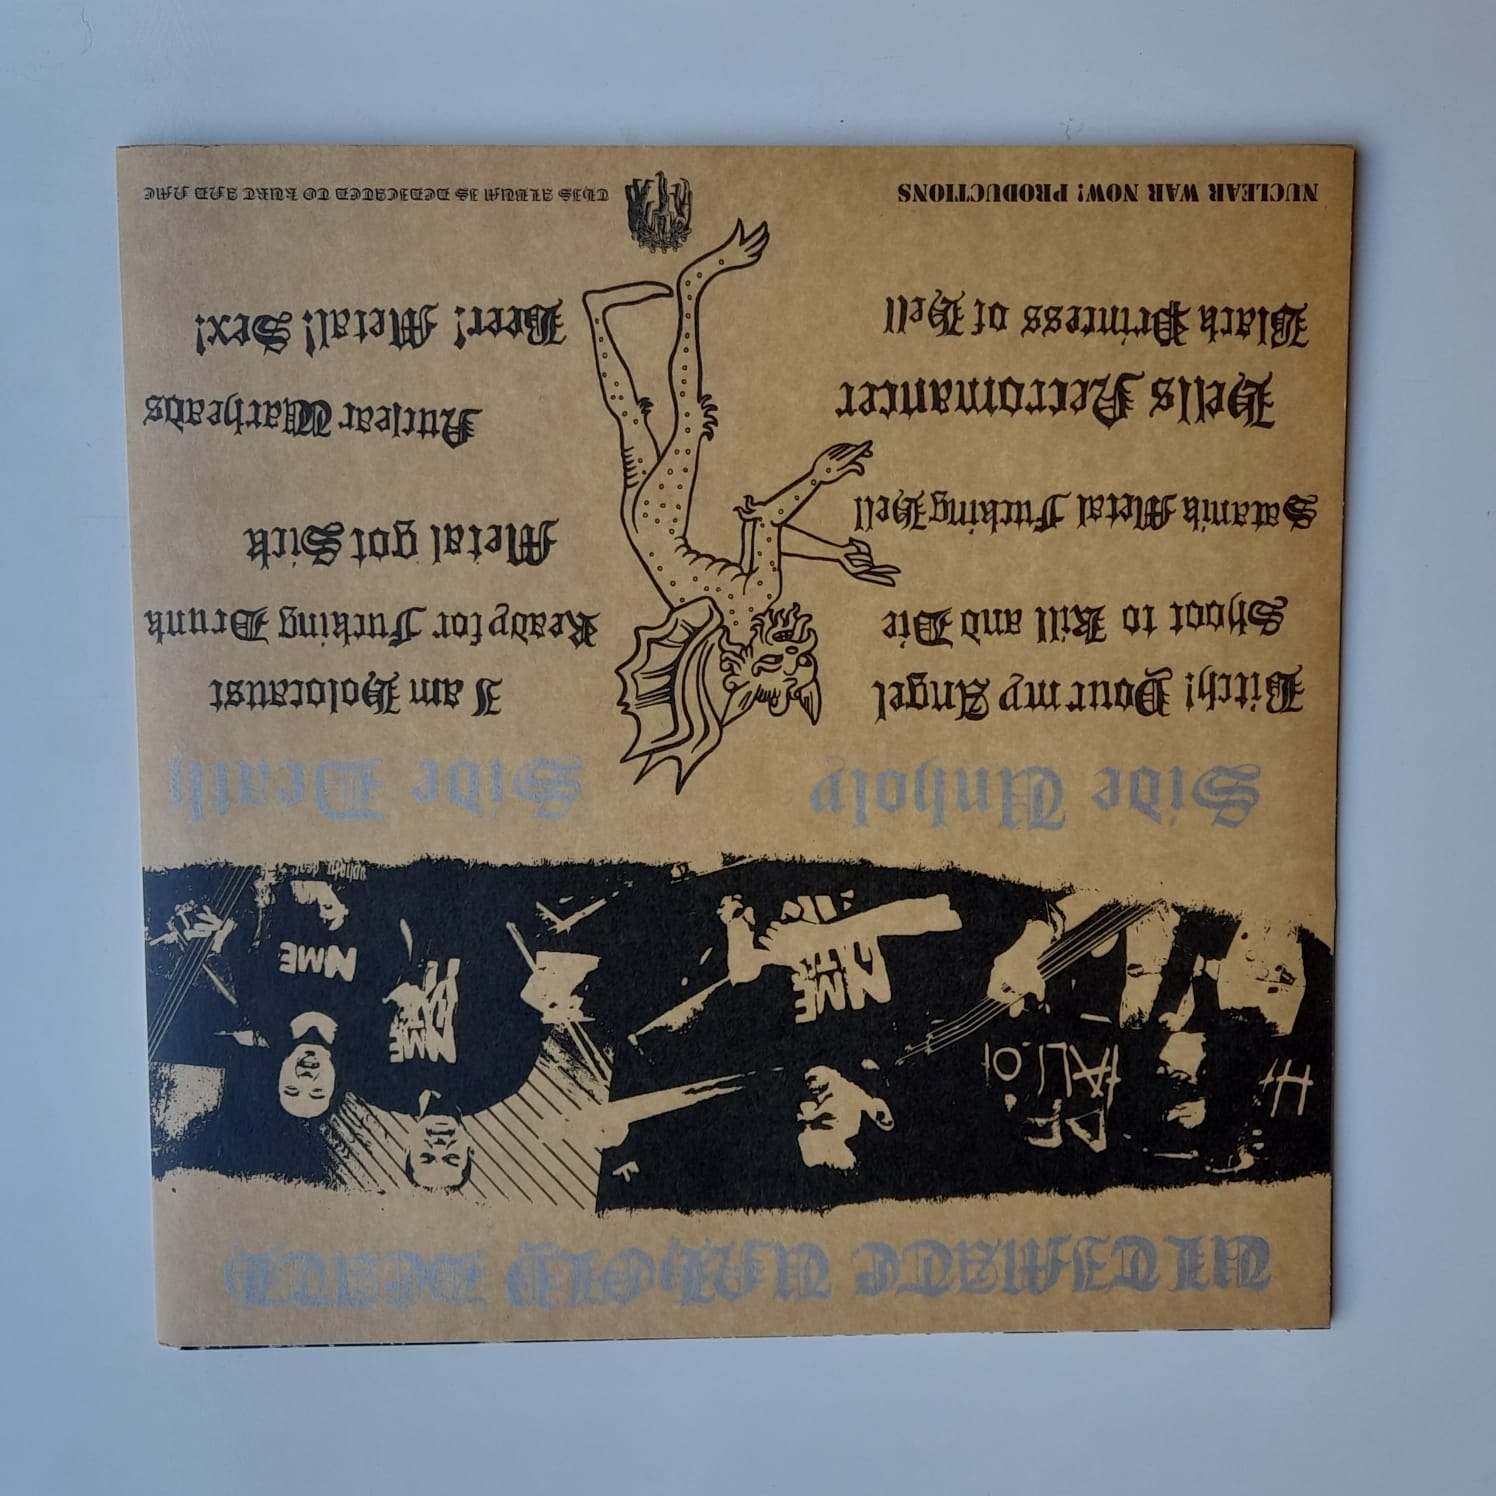 ULTIMATE UNHOLY DEATH
H
DEF
ALIO
NME
NME
NME
Side Unholy
Bitch! Your my Angel
Shoot to Kill and Die
Satanik Metal Fucking Hell
Hells Necromancer
Black Princess of Hell
Side Death
I am Holocaust
Ready for Fucking Drunk
Metal got Sick
Nuclear Warheads
Beer! Metal! Sex!
NUCLEAR WAR NOW! PRODUCTIONS
THIS ALBUM IS DEDICATED TO KURT AND NME